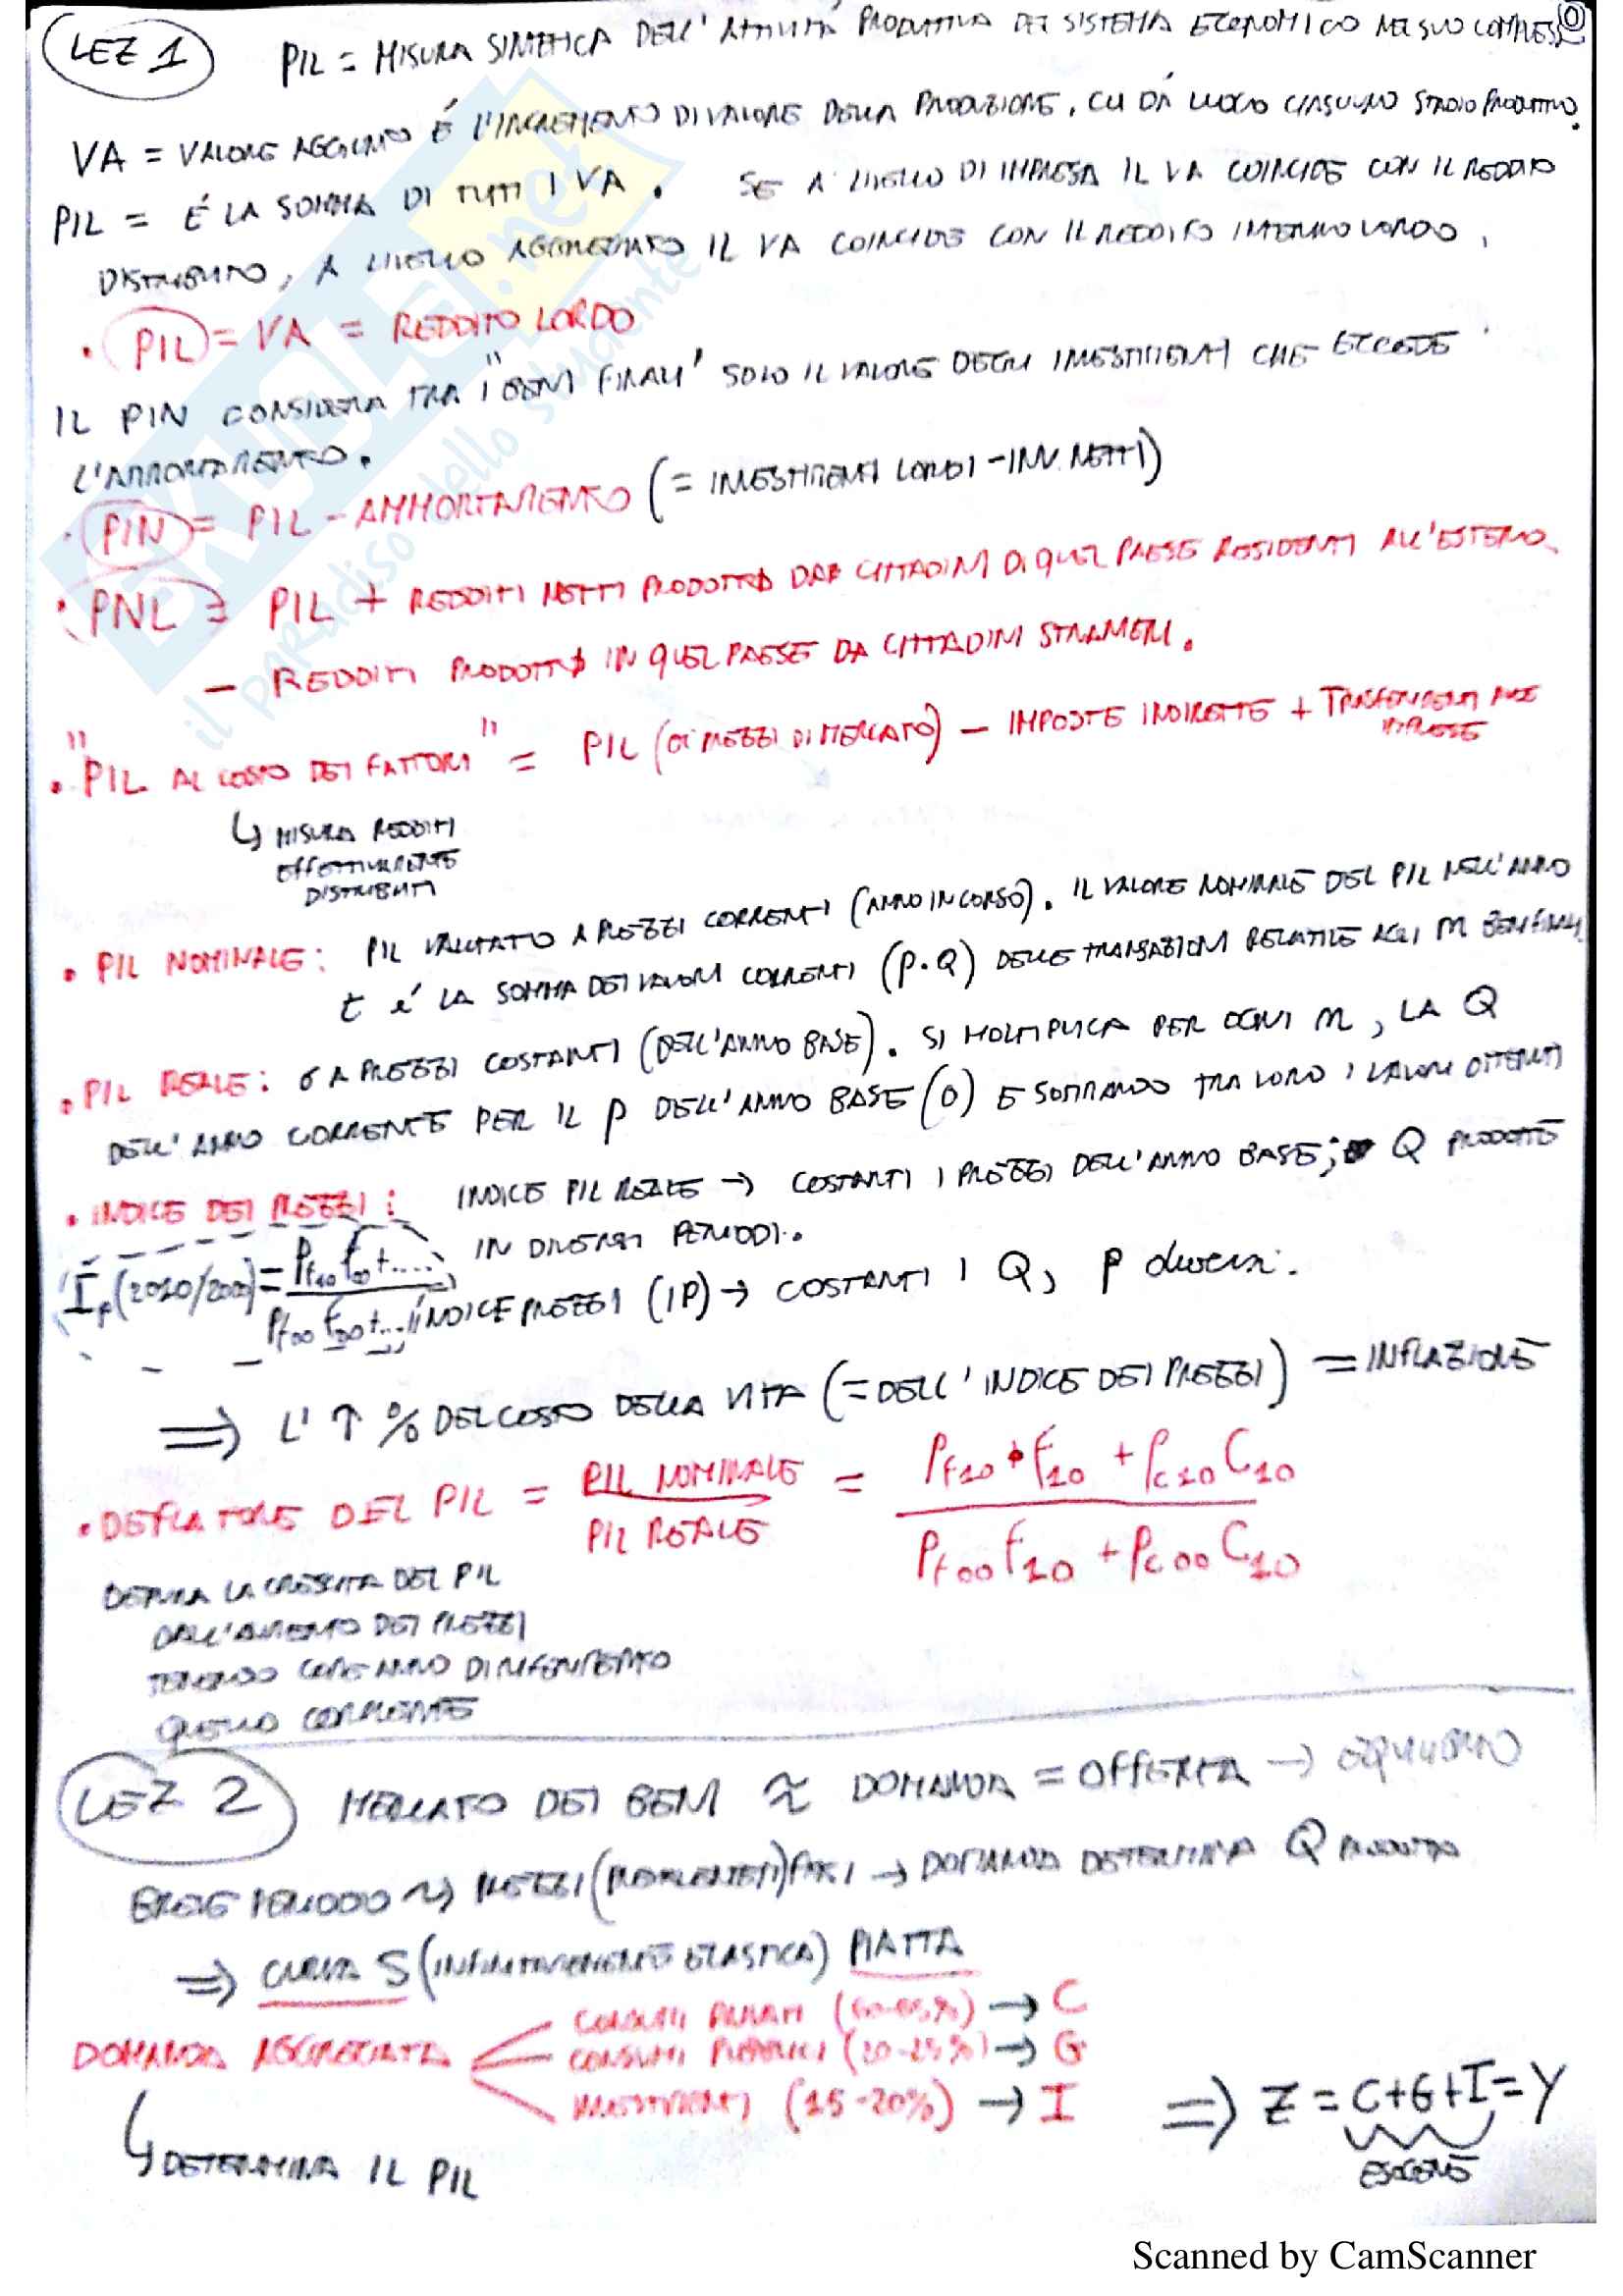 LEZ 1 PIL = MISURA SINTETICA DELL'ATTIVITÀ PRODUTTIVA DEL SISTEMA ECONOMICO NEL SUO COMPLESSO
VA = VALORE AGGIUNTO É L'INCREMENTO DI VALORE DELLA PRODUZIONE, CUI DÀ LUOGO CIASCUNO STADIO PRODUTTIVO.
PIL = É LA SOMMA DI TUTTI I VA. SE A LIVELLO DI IMPRESA IL VA COINCIDE CON IL REDDITO
DISTRIBUITO, A LIVELLO AGGREGATO IL VA COINCIDE CON IL REDDITO INTERNO LORDO.
• PIL = VA = REDDITO LORDO
IL PIN CONSIDERA TRA I "BENI FINALI" SOLO IL VALORE DEGLI INVESTIMENTI CHE ECCEDE
L'AMMORTAMENTO.
• PIN = PIL - AMMORTAMENTO (= INVESTIMENTI LORDI - INV. NETTI)
• PNL = PIL + REDDITI NETTI PRODOTTI DAI CITTADINI DI QUEL PAESE RESIDENTI ALL'ESTERO
- REDDITI PRODOTTI IN QUEL PAESE DA CITTADINI STRANIERI.
• "PIL AL COSTO DEI FATTORI" = PIL (AI PREZZI DI MERCATO) - IMPOSTE INDIRETTE + TRASFERIMENTI ALLE IMPRESE
↳ MISURA REDDITI
EFFETTIVAMENTE
DISTRIBUITI
• PIL NOMINALE: PIL VALUTATO A PREZZI CORRENTI (ANNO IN CORSO). IL VALORE NOMINALE DEL PIL NELL'ANNO
t é LA SOMMA DEI VALORI CORRENTI (P·Q) DELLE TRANSAZIONI RELATIVE AGLI M BENI FINALI
• PIL REALE: O A PREZZI COSTANTI (DELL'ANNO BASE). SI MOLTIPLICA PER OGNI M, LA Q
DELL'ANNO CORRENTE PER IL P DELL'ANNO BASE (0) E SOMMANDO TRA LORO I VALORI OTTENUTI
• INDICE DEI PREZZI: INDICE PIL REALE → COSTANTI I PREZZI DELL'ANNO BASE; Q PRODOTTE
IN DIVERSI PERIODI.
Ip(2010/2000) = Pf10 f00 + .... / Pf00 f00 + ...
INDICE PREZZI (IP) → COSTANTI I Q, P diversi.
⇒ L'↑ % DEL COSTO DELLA VITA (= DELL'INDICE DEI PREZZI) = INFLAZIONE
• DEFLATORE DEL PIL = PIL NOMINALE / PIL REALE = Pf10 · F10 + Pc10 C10 / Pf00 F10 + Pc00 C10
DEPURA LA CRESCITA DEL PIL
DALL'AUMENTO DEI PREZZI
TENENDO COME ANNO DI RIFERIMENTO
QUELLO CORRENTE
LEZ 2 MERCATO DEI BENI ≈ DOMANDA = OFFERTA → EQUILIBRIO
BREVE PERIODO ~> PREZZI FISSI → DOMANDA DETERMINA Q PRODOTTA
⇒ CURVA S (INFINITAMENTE ELASTICA) PIATTA
DOMANDA AGGREGATA
CONSUMI PRIVATI (60-65%) → C
CONSUMI PUBBLICI (20-25%) → G
INVESTIMENTI (15-20%) → I
⇒ Z = C+G+I = Y
↳ DETERMINA IL PIL
SKUOLA.net
il paradiso dello studente
Scanned by CamScanner